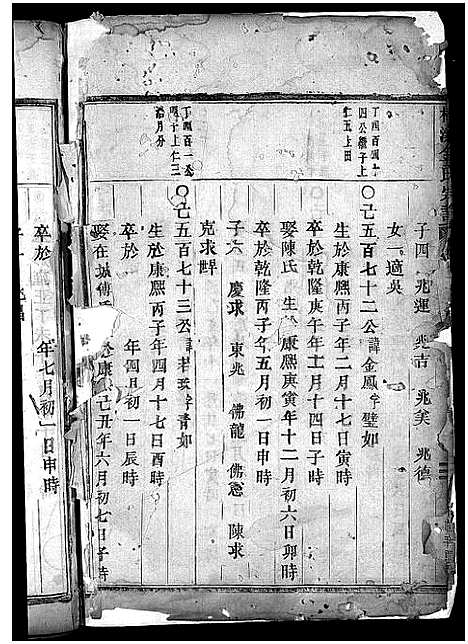 子四 兆運 兆吉 兆美 兆德
女一適吳
丁四百四十
四公繼子上
仁五上田
〇己五百七十二公諱金鳳字璧如
生於康熙丙子年二月十七日寅時
卒於乾隆庚午年十一月十四日子時
娶陳氏 生於康熙庚寅年十二月初六日卯時
卒於乾隆丙子年五月初一日申時
子六 慶求 東兆 佛龍 佛 陳求
克求
丁四百一公
子上仁三
〇己五百七十三公諱若 字青如
生於康熙丙子年四月十七日酉時
卒於 年四月初一日辰時
娶在城傅氏 康 己丑年六月初七日子時
卒於 年七月初一日申時